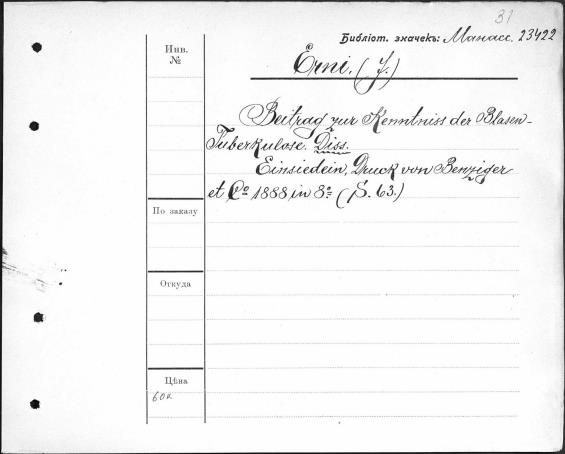 31
Библіот. значекъ: Манасс. 23422
Инв.
№
Erni. (J.)
Beitrag zur Kenntniss der Blasen-
Tuberkulose. Diss.
Einsiedein, Druck von Benziger
et Co 1888 in 8o (S. 63.)
По заказу
Откуда
Цѣна
60к